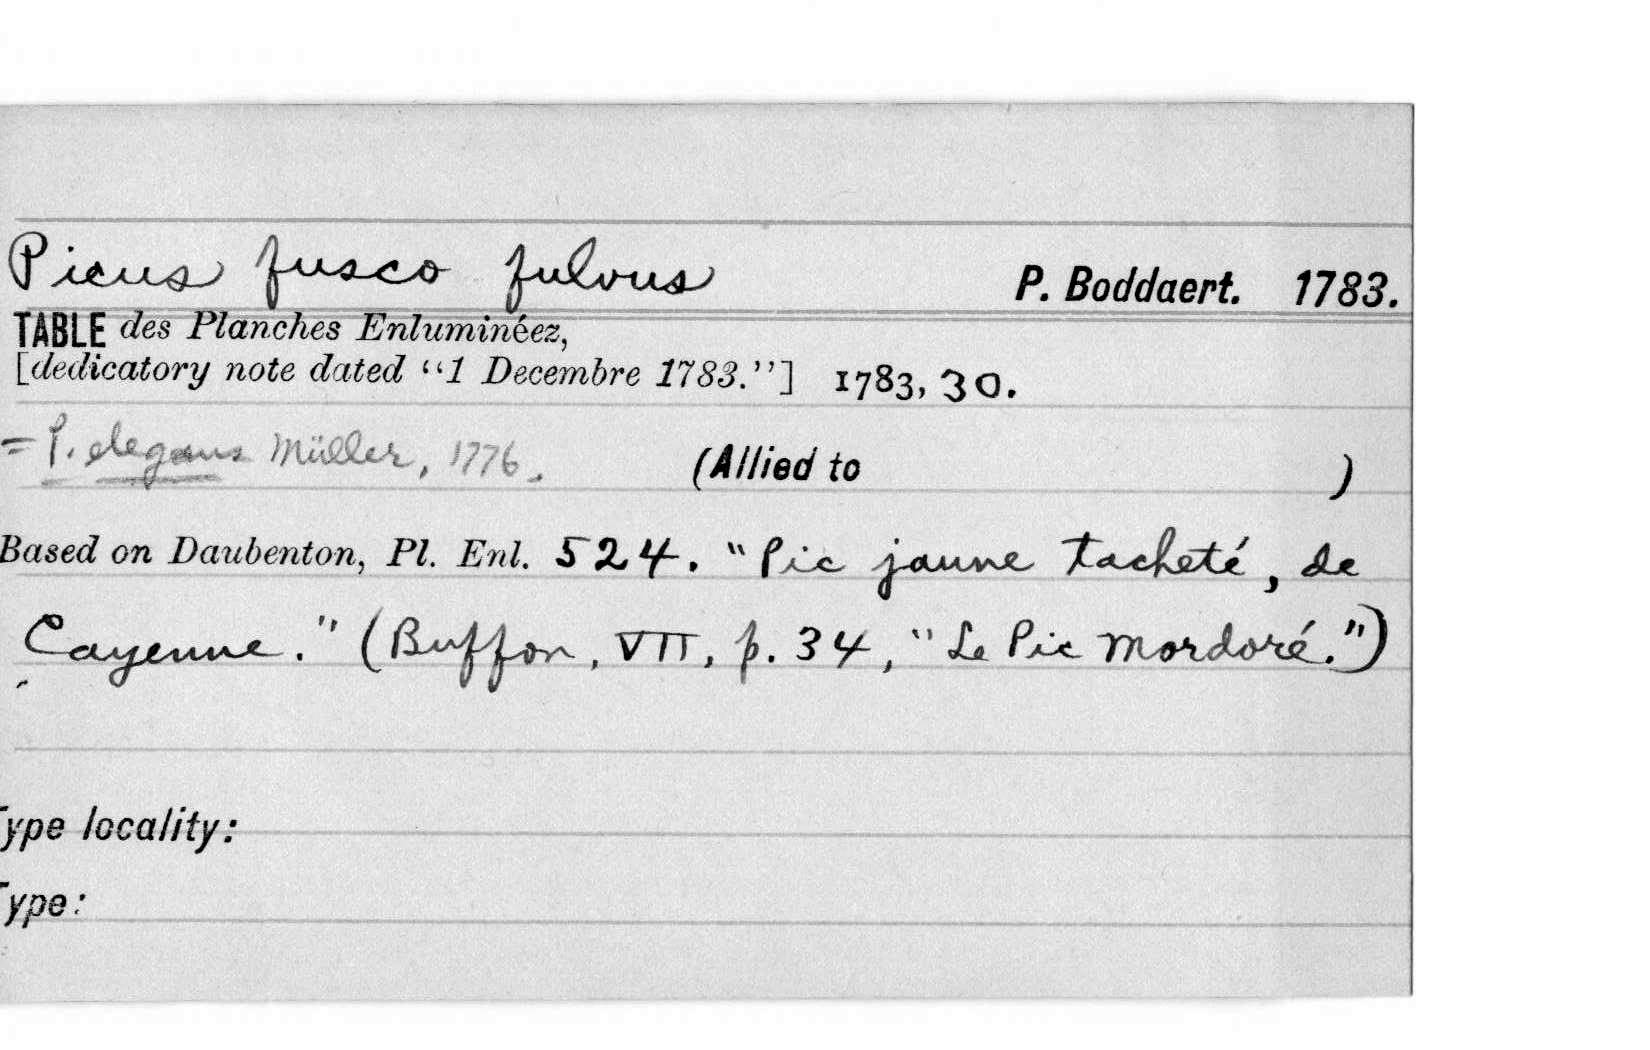 Picus fusco fulvus P. Boddaert. 1783.
TABLE des Planches Enluminéez,
[dedicatory note dated “1 Decembre 1783.”] 1783, 30.
= P. elegans Müller, 1776. (Allied to )
Based on Daubenton, Pl. Enl. 524. "Pic jaune tacheté, de
Cayenne." (Buffon, VII, p. 34, "Le Pic Mordoré.")
Type locality:
Type: